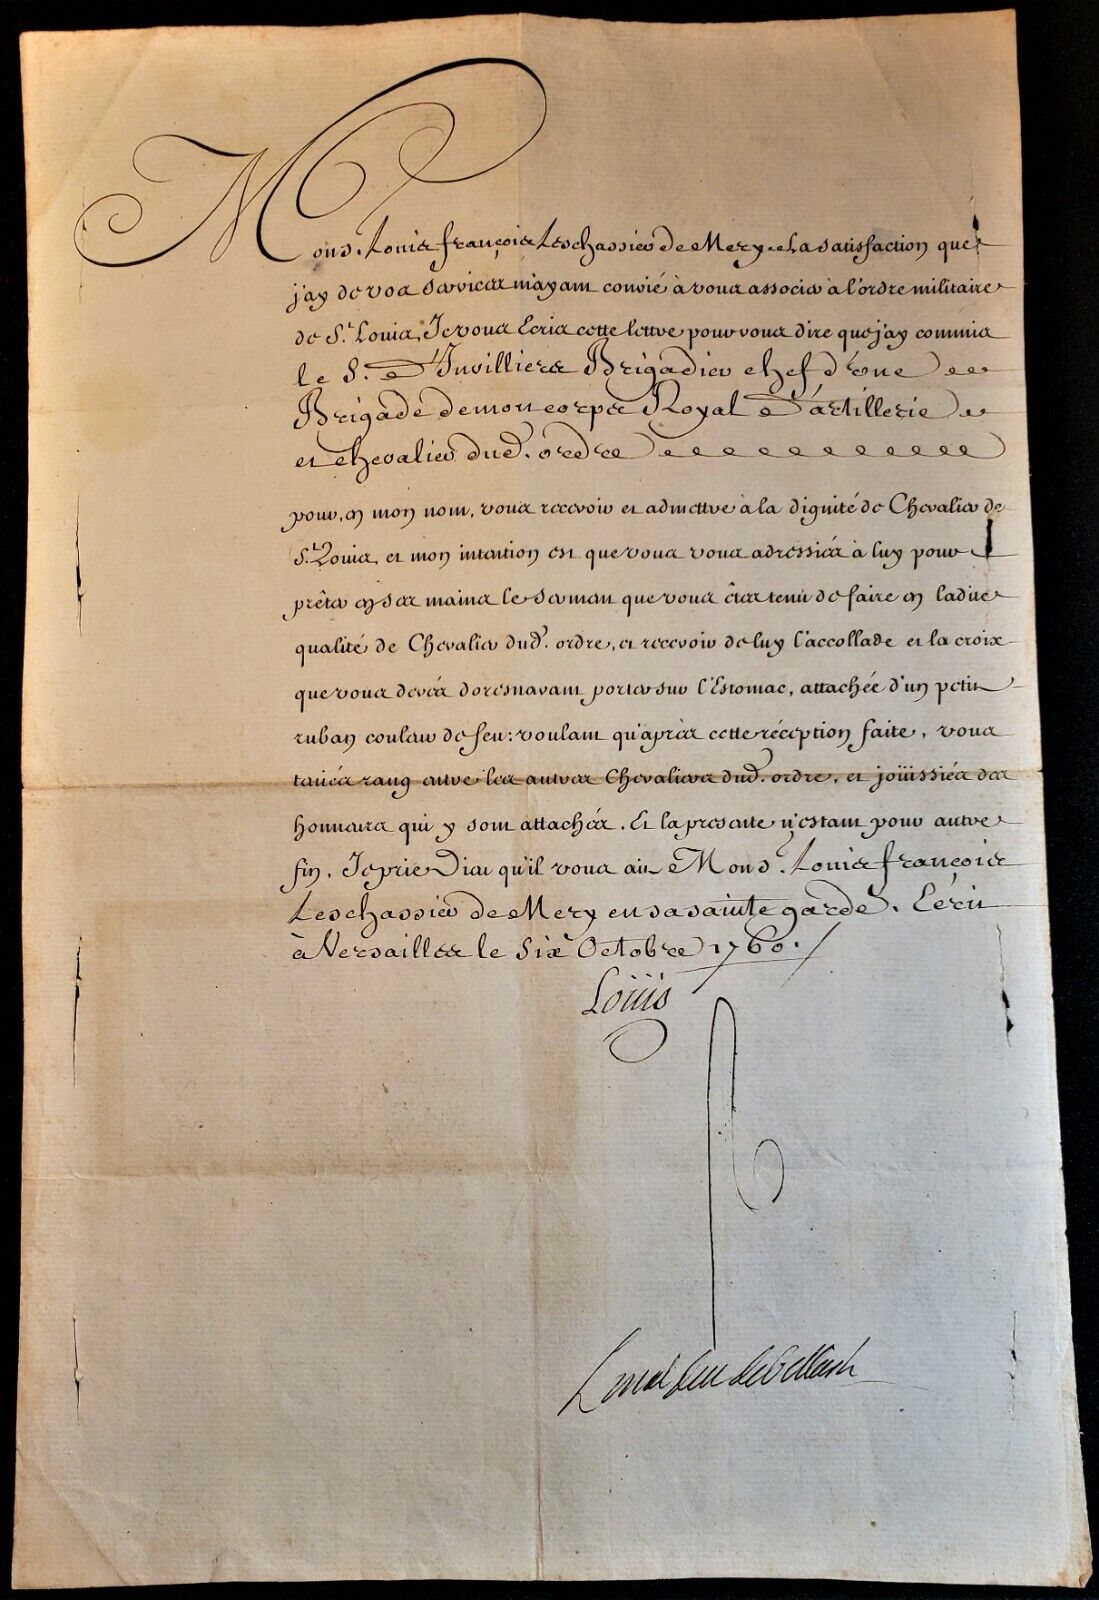 Mons. Louis françois Leschassier de Mery. La satisfaction que
j'ay de vos services m'ayant convié à vous associer à l'ordre militaire
de St. Louis, Je vous Ecris cette lettre pour vous dire que j'ay commis
le S. D'Invilliers Brigadier chef d'une
Brigade de mon corps Royal D'artillerie
et chevalier dud. ordre
pour, en mon nom, vous recevoir et admettre à la dignité de Chevalier de
St. Louis, et mon intention est que vous vous adressiés à luy pour
prêter en ses mains le serment que vous êtes tenu de faire en ladite
qualité de Chevalier dud. ordre, et recevoir de luy l'accollade et la croix
que vous devés doresnavant porter sur l'Estomac, attachée d'un petit
ruban couleur de feu: voulant qu'après cette réception faite, vous
teniés rang entre les autres Chevaliers dud. ordre, et joüissiés des
honneurs qui y sont attachés. Et la presente n'estant pour autre
fin, Je prie Dieu qu'il vous ait Mons. Louis françois
Leschassier de Mery en sa sainte garde. Ecrit
à Versailles le Six Octobre 1760.
Loüis
Le mal duc de Belleisle